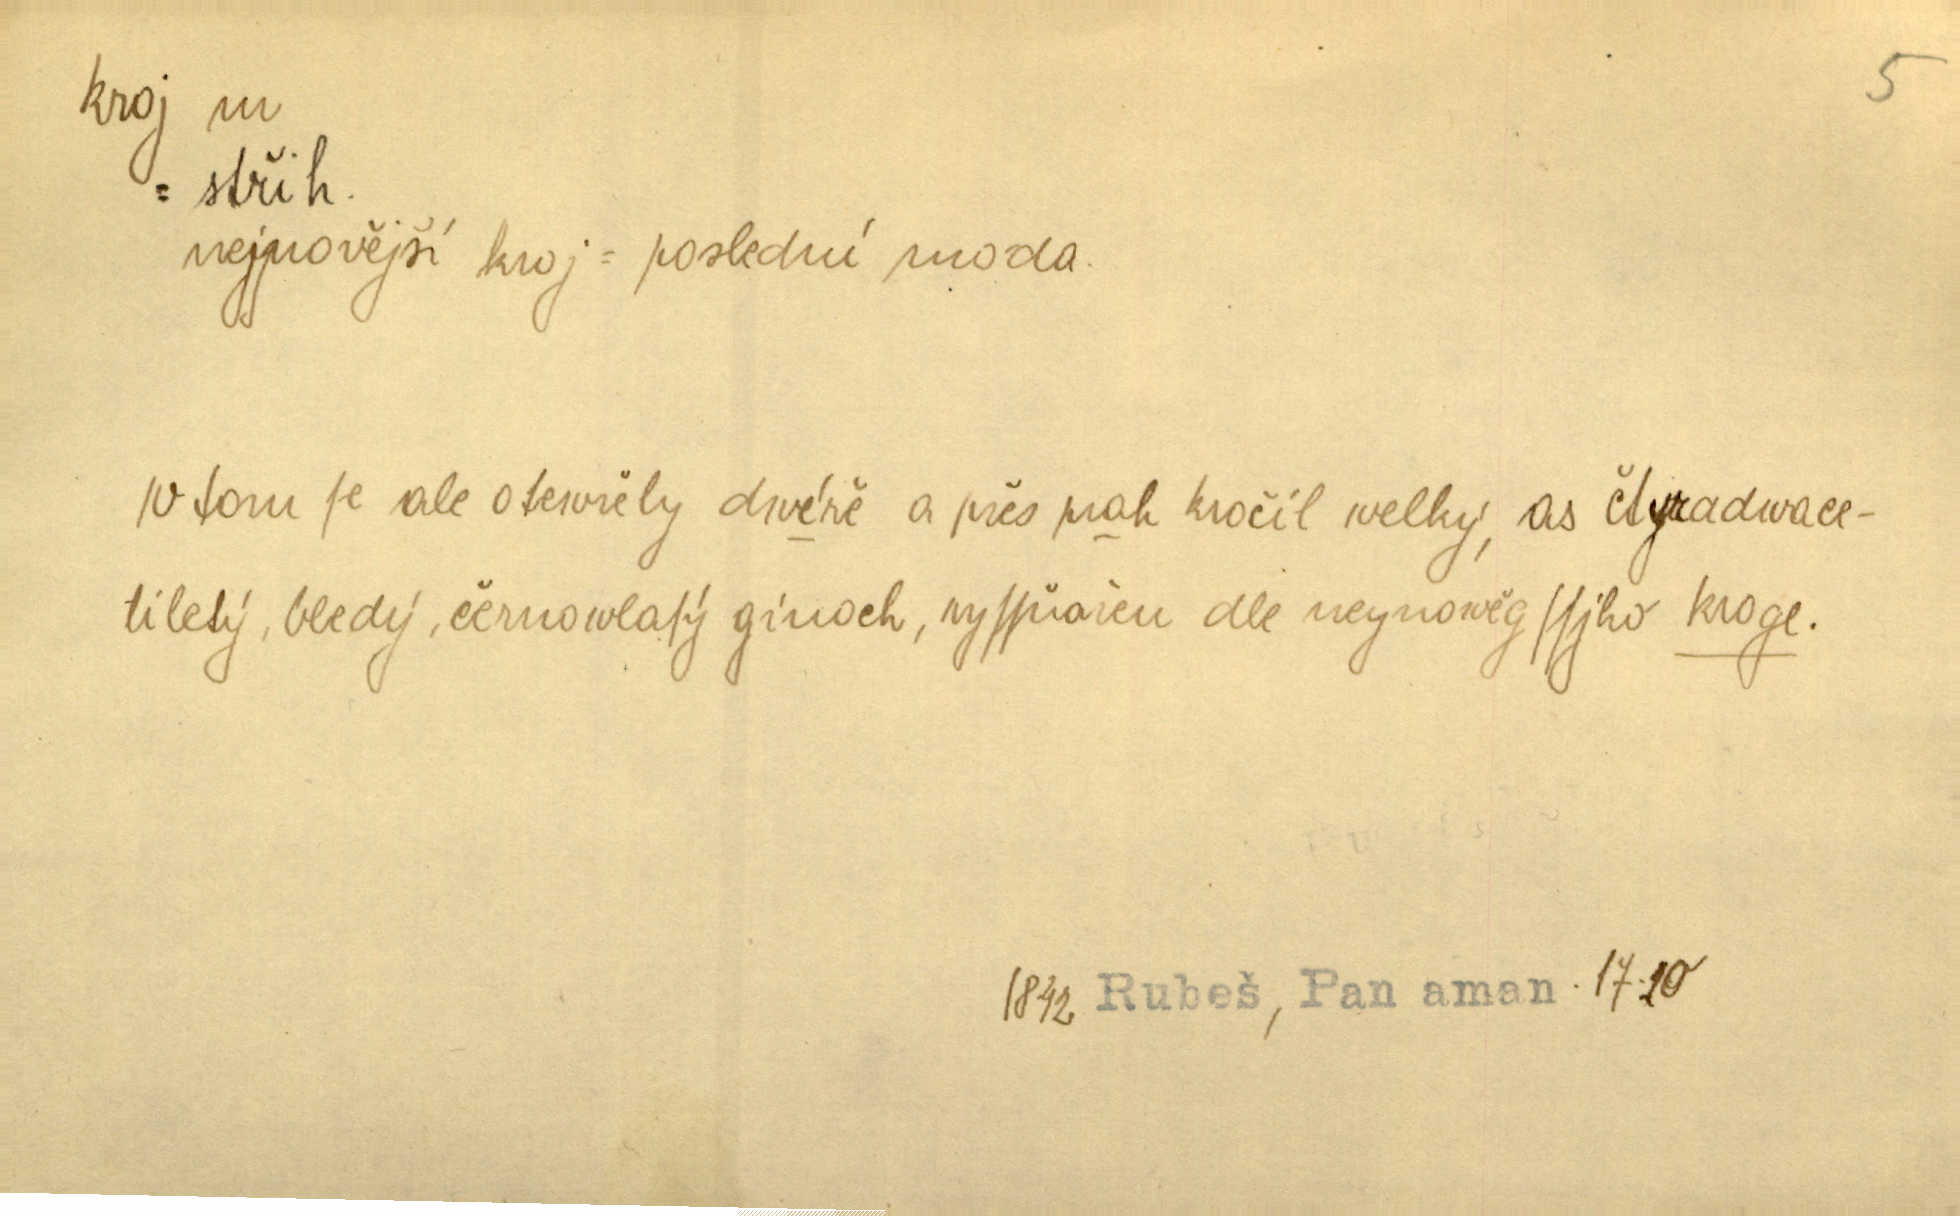 5
kroj m
= střih.
nejnovější kroj = poslední moda.
W tom ſe ale otewřely dwéřě a přes prah kročil welký, as čtyradwace-
tiletý, bledý, černowlaſý ginoch, wyſſňořen dle neynowěgſſjho kroge.
1842 Rubeš, Pan aman. 17.20